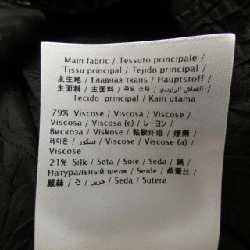 Main fabric / Tessuto principale /
Tissu principal / Tejido principal /
主生地 / Главная ткань / Hauptstoff /
主面料 / 主要布料 / 주소재 / القماش الرئيسي /
Tecido principal / Kain utama
79% Viscose / Viscosa / Viscose /
Viscosa / Viscosa (e) / レーヨン /
Вискоза / Viskose / 粘胶纤维 / 嫘縈 /
Viscose / Viscosa (a) /
Viscose
21% Silk / Seta / Soie / Seda / 絹 /
Натуральный шелк / Seide / 桑蚕丝 /
蠶絲 / 견 / حرير / Seda / Sutera